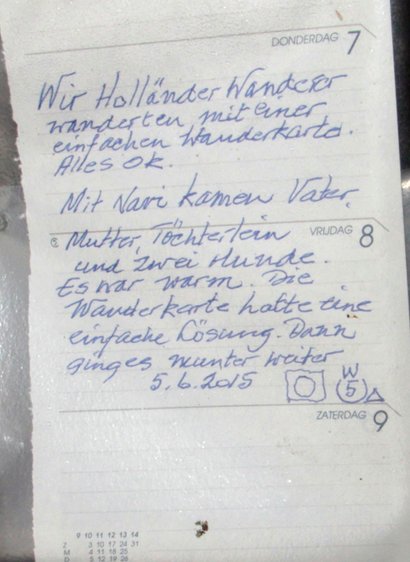 DONDERDAG 7
Wir Holländer Wanderer
wanderten mit einer
einfachen Wanderkarte.
Alles ok.
Mit Navi kamen Vater,
VRIJDAG 8
Mutter, Töchterlein
und zwei Hunde.
Es war warm. Die
Wanderkarte hatte eine
einfache Lösung. Dann
ginges munter weiter
5.6.2015
W
5
ZATERDAG 9
9 10 11 12 13 14
Z 3 10 17 24 31
M 4 11 18 25
D 5 12 19 26